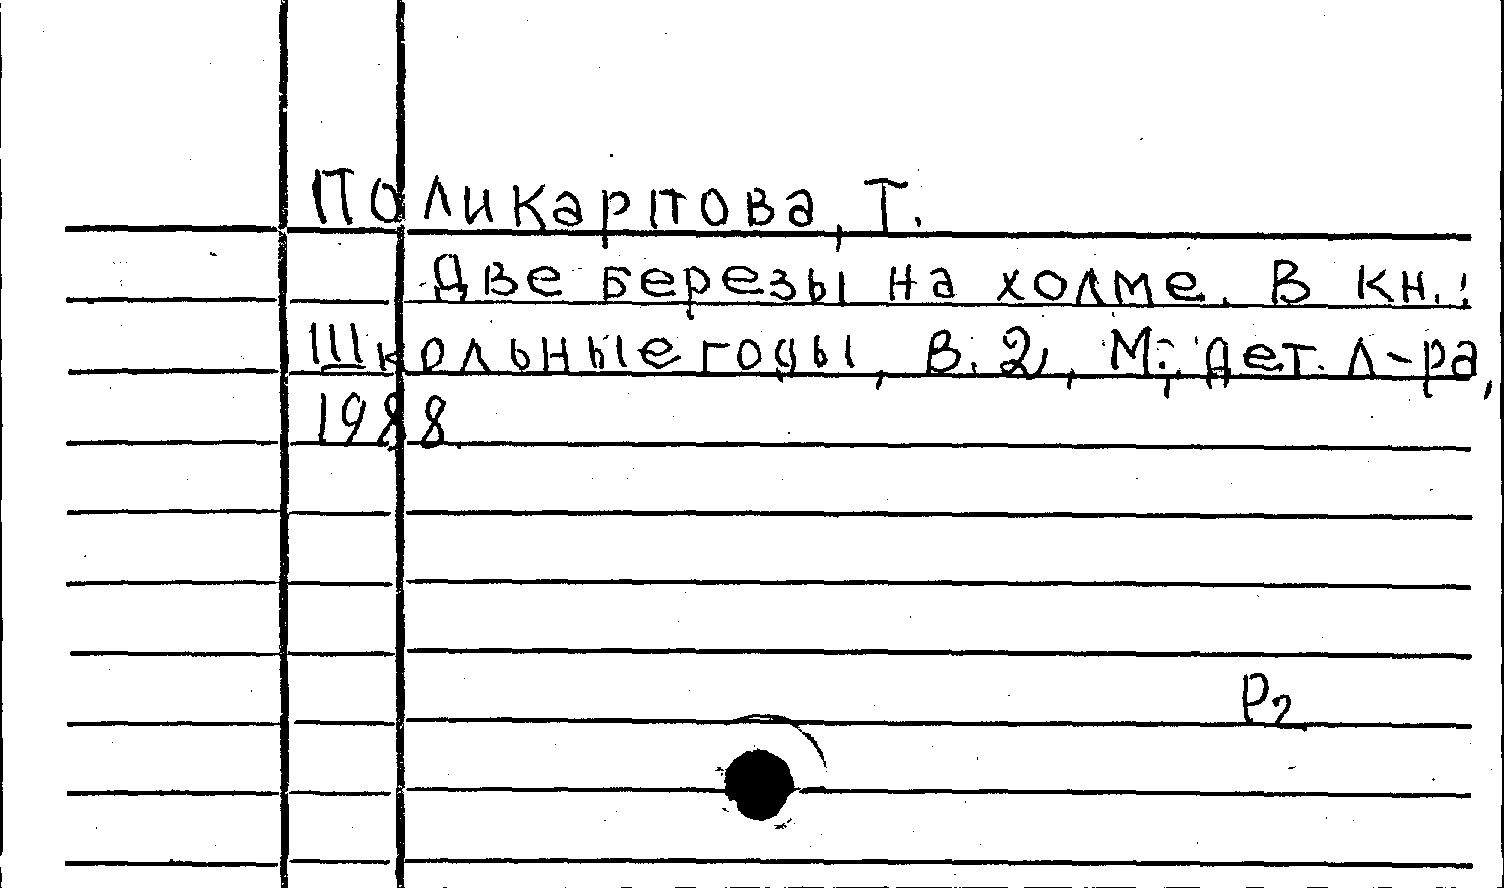 Поликарпова, Т.
Две березы на холме. В кн.:
Школьные годы, В. 2, М.; Дет. л-ра,
1988.
Р2